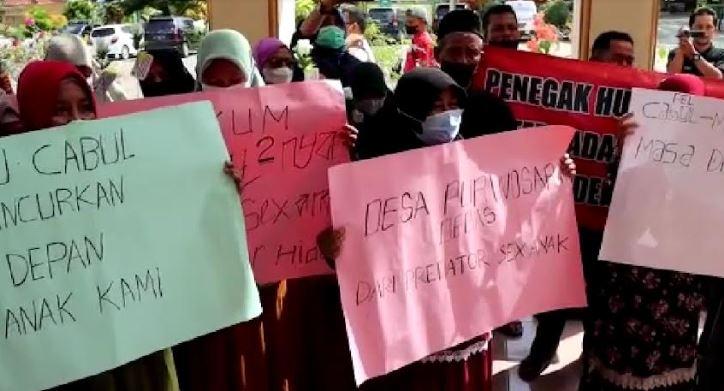 U. CABUL
ANCURKAN
DEPAN
ANAK KAMI
KUM
2nya
Sexan
r Hid
DESA PURWOSARI
BEBAS
DARI PREDATOR SEX ANAK
PENEGAK HU
ADA
DEN
CABUL-M
MaSa D